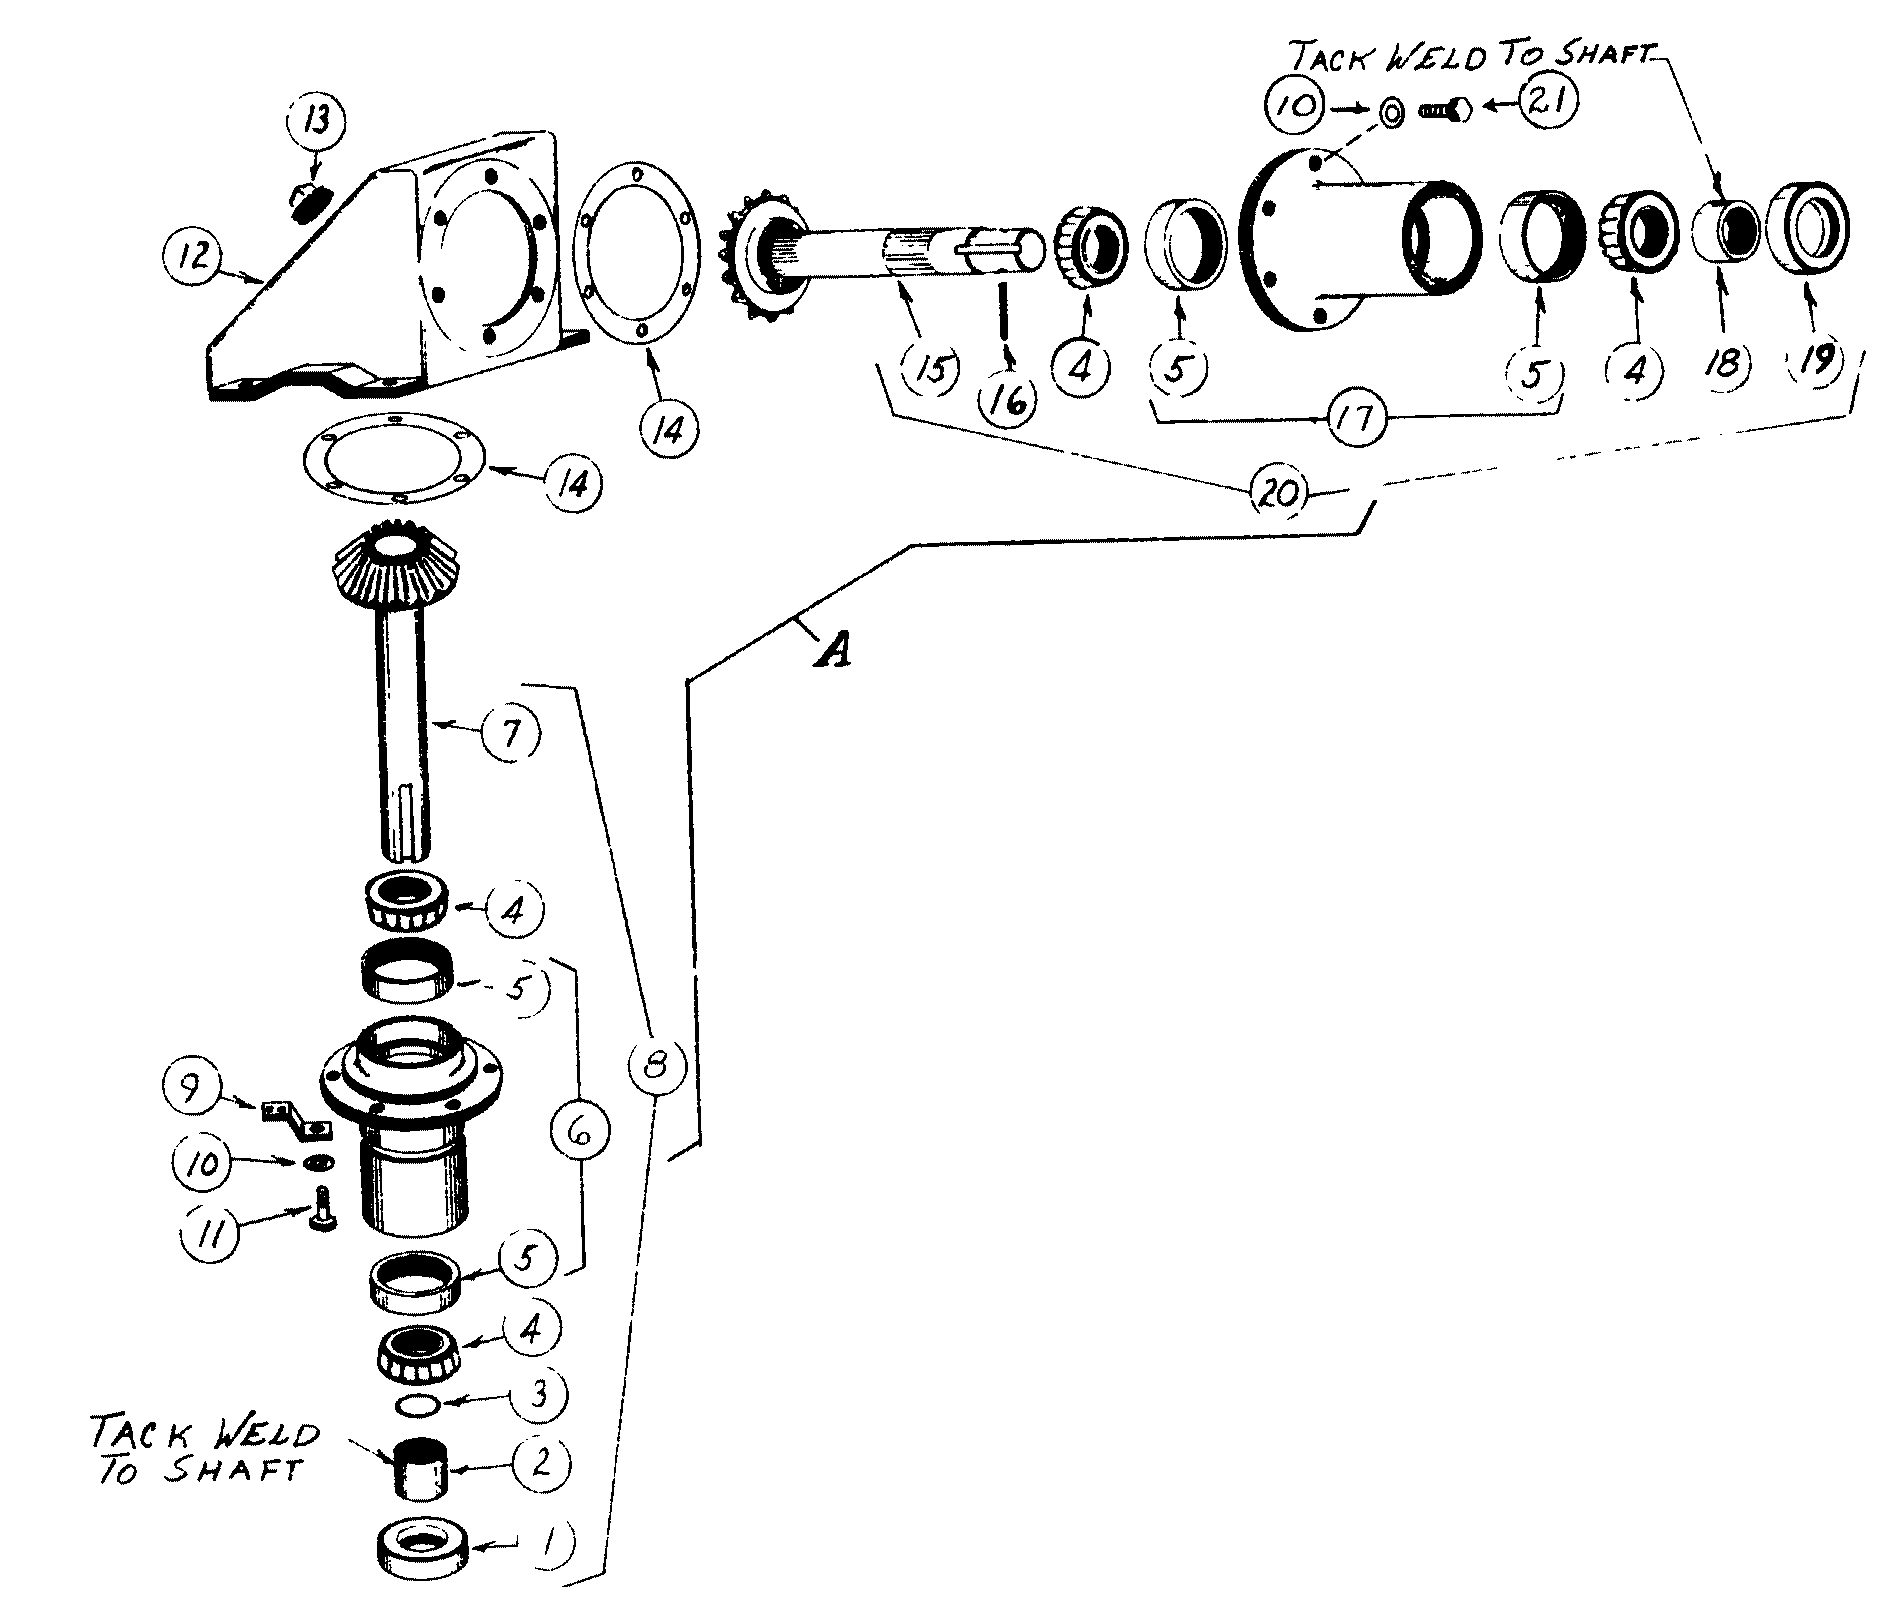 TACK WELD TO SHAFT
10
21
13
12
15
16
4
5
5
4
18
19
17
14
14
20
A
7
4
5
8
9
6
10
11
5
4
3
TACK WELD
TO SHAFT
2
1